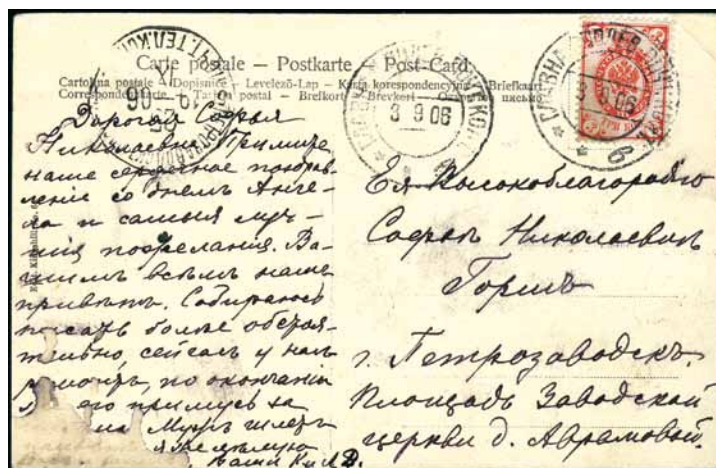 Carte postale – Postkarte – Post-Card
Cartolina postale – Dopisnice – Levelező-Lap – Karta korespondencyjna – Briefkaart
Correspondenzkarte – Tarjeta postal – Brefkort – Brevkort – Открытое письмо
3 9 06
3 9 06
6
Дорогая Софья
Николаевна Примите
наше сердечное поздрав-
ление со днемъ Анге-
ла и самыя луч-
шія пожеланія. Ва-
шимъ всѣмъ наше
привѣтъ. Собираюсь
писать болѣе обстоя-
тельно, сейчасъ у насъ
ремонтъ, по окончаніи
его примусь за
Мужъ шлетъ
Ея Высокоблагородію
Софьѣ Николаевнѣ
г. Петрозаводскъ.
Площадь Заводской
церкви д. Аврамовой.